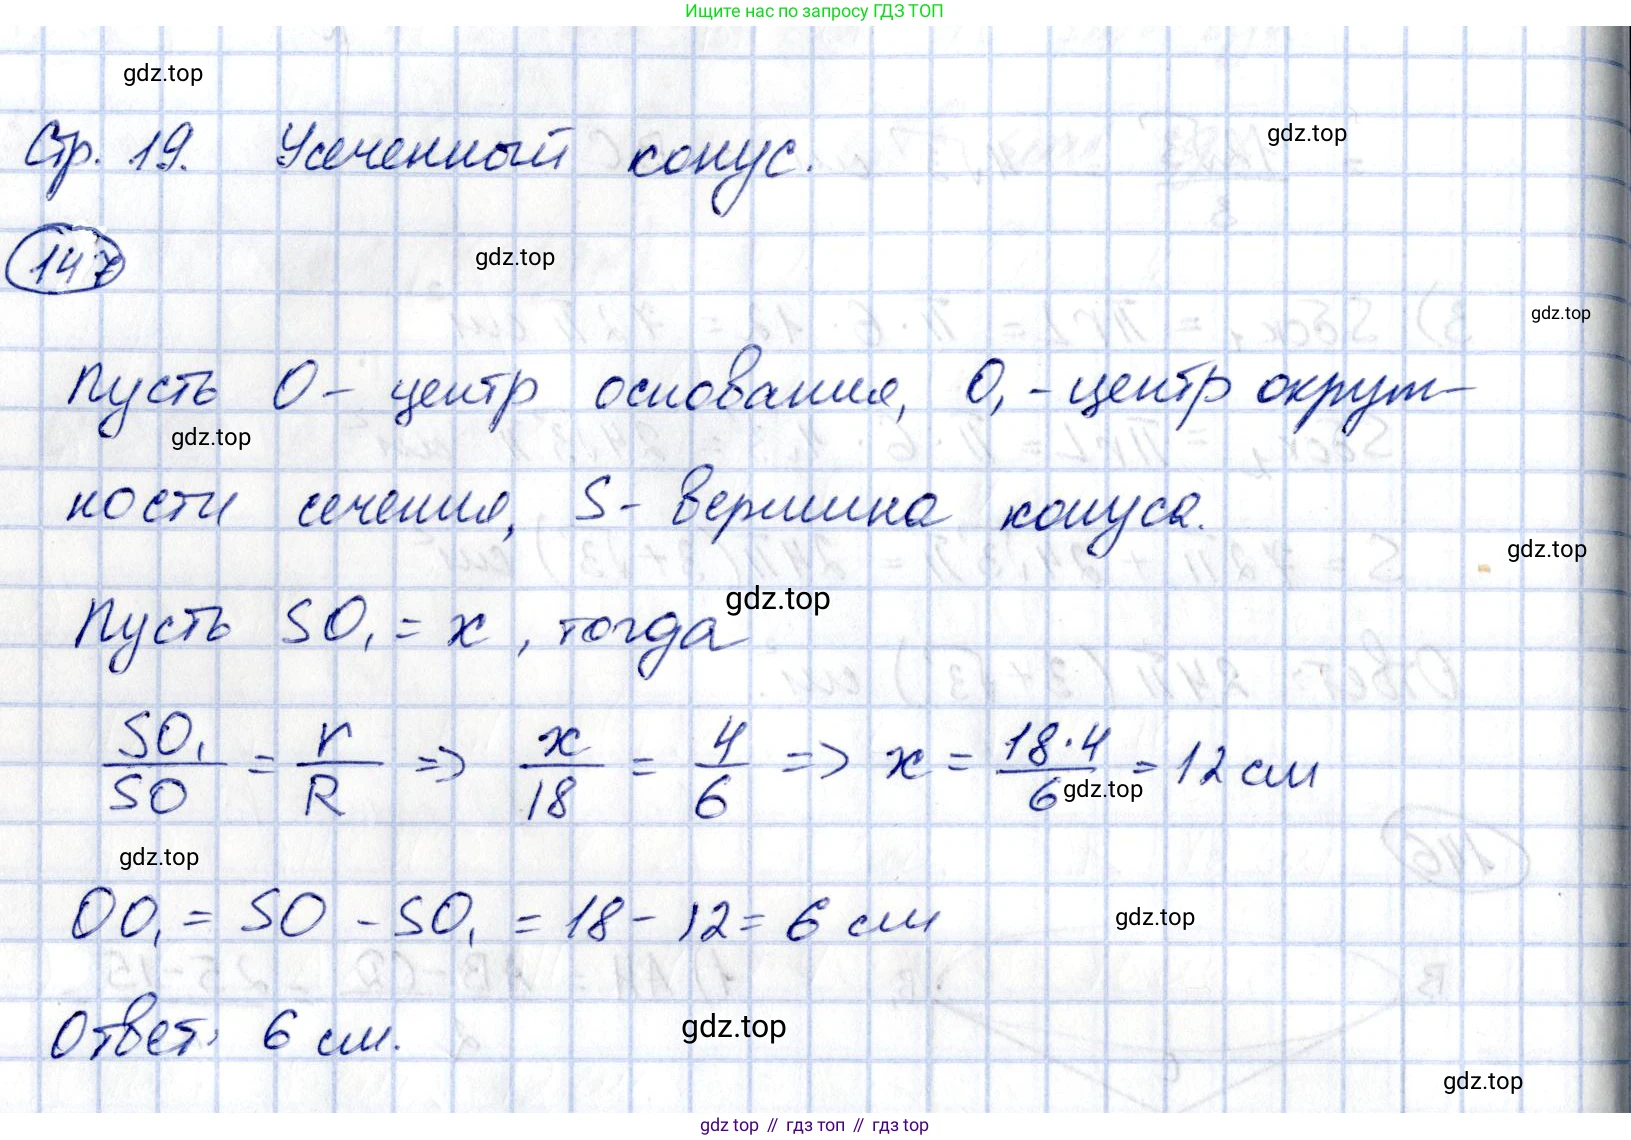 Ищите нас по запросу ГДЗ ТОП
gdz.top
Стр. 19. Усеченный конус.
gdz.top
147
gdz.top
gdz.top
Пусть O – центр основания, O₁ – центр окруж-
gdz.top
ности сечения, S – вершина конуса.
gdz.top
gdz.top
Пусть SO₁ = x, тогда
SO₁/SO = r/R => x/18 = 4/6 => x = 18·4/6 = 12 см
gdz.top
gdz.top
OO₁ = SO – SO₁ = 18 – 12 = 6 см
gdz.top
Ответ: 6 см.
gdz.top
gdz.top
gdz top // гдз топ // гдз top